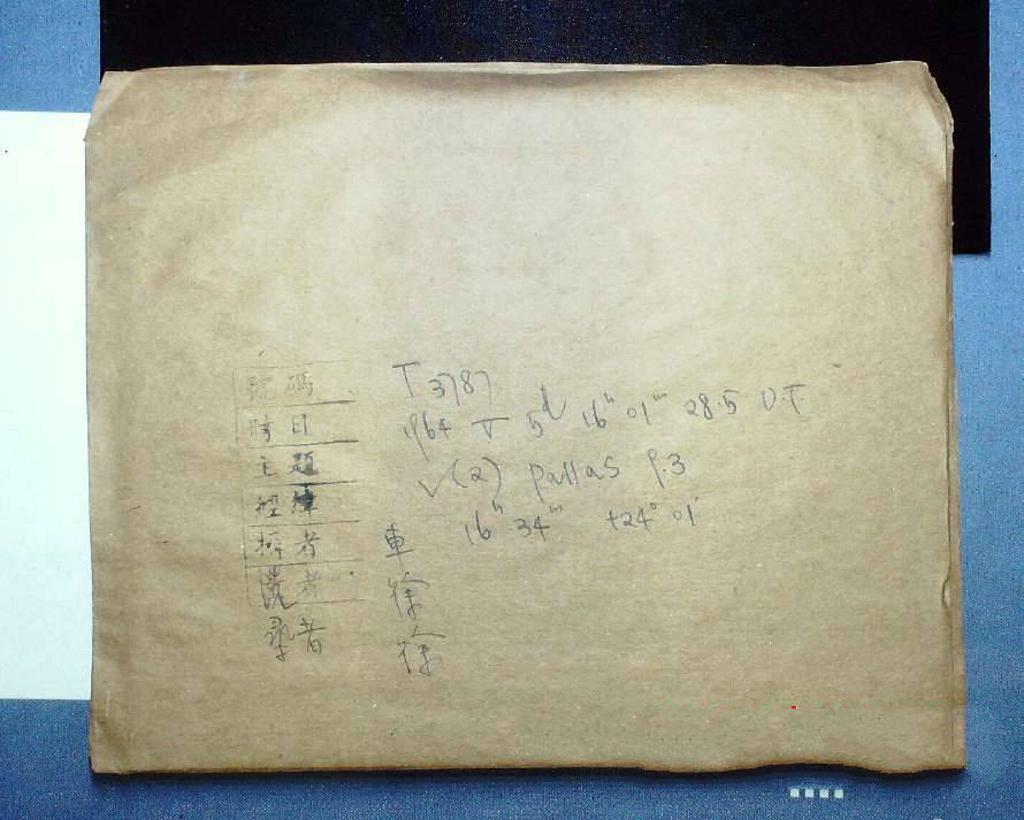 號碼 T 3787
時日 1964 V 5d 16h 01m 28.5 U.T.
主題 √(2) pallas P.3
經緯 16h 34m +24° 01'
攝者 車
洗者 徐
尋者 徐